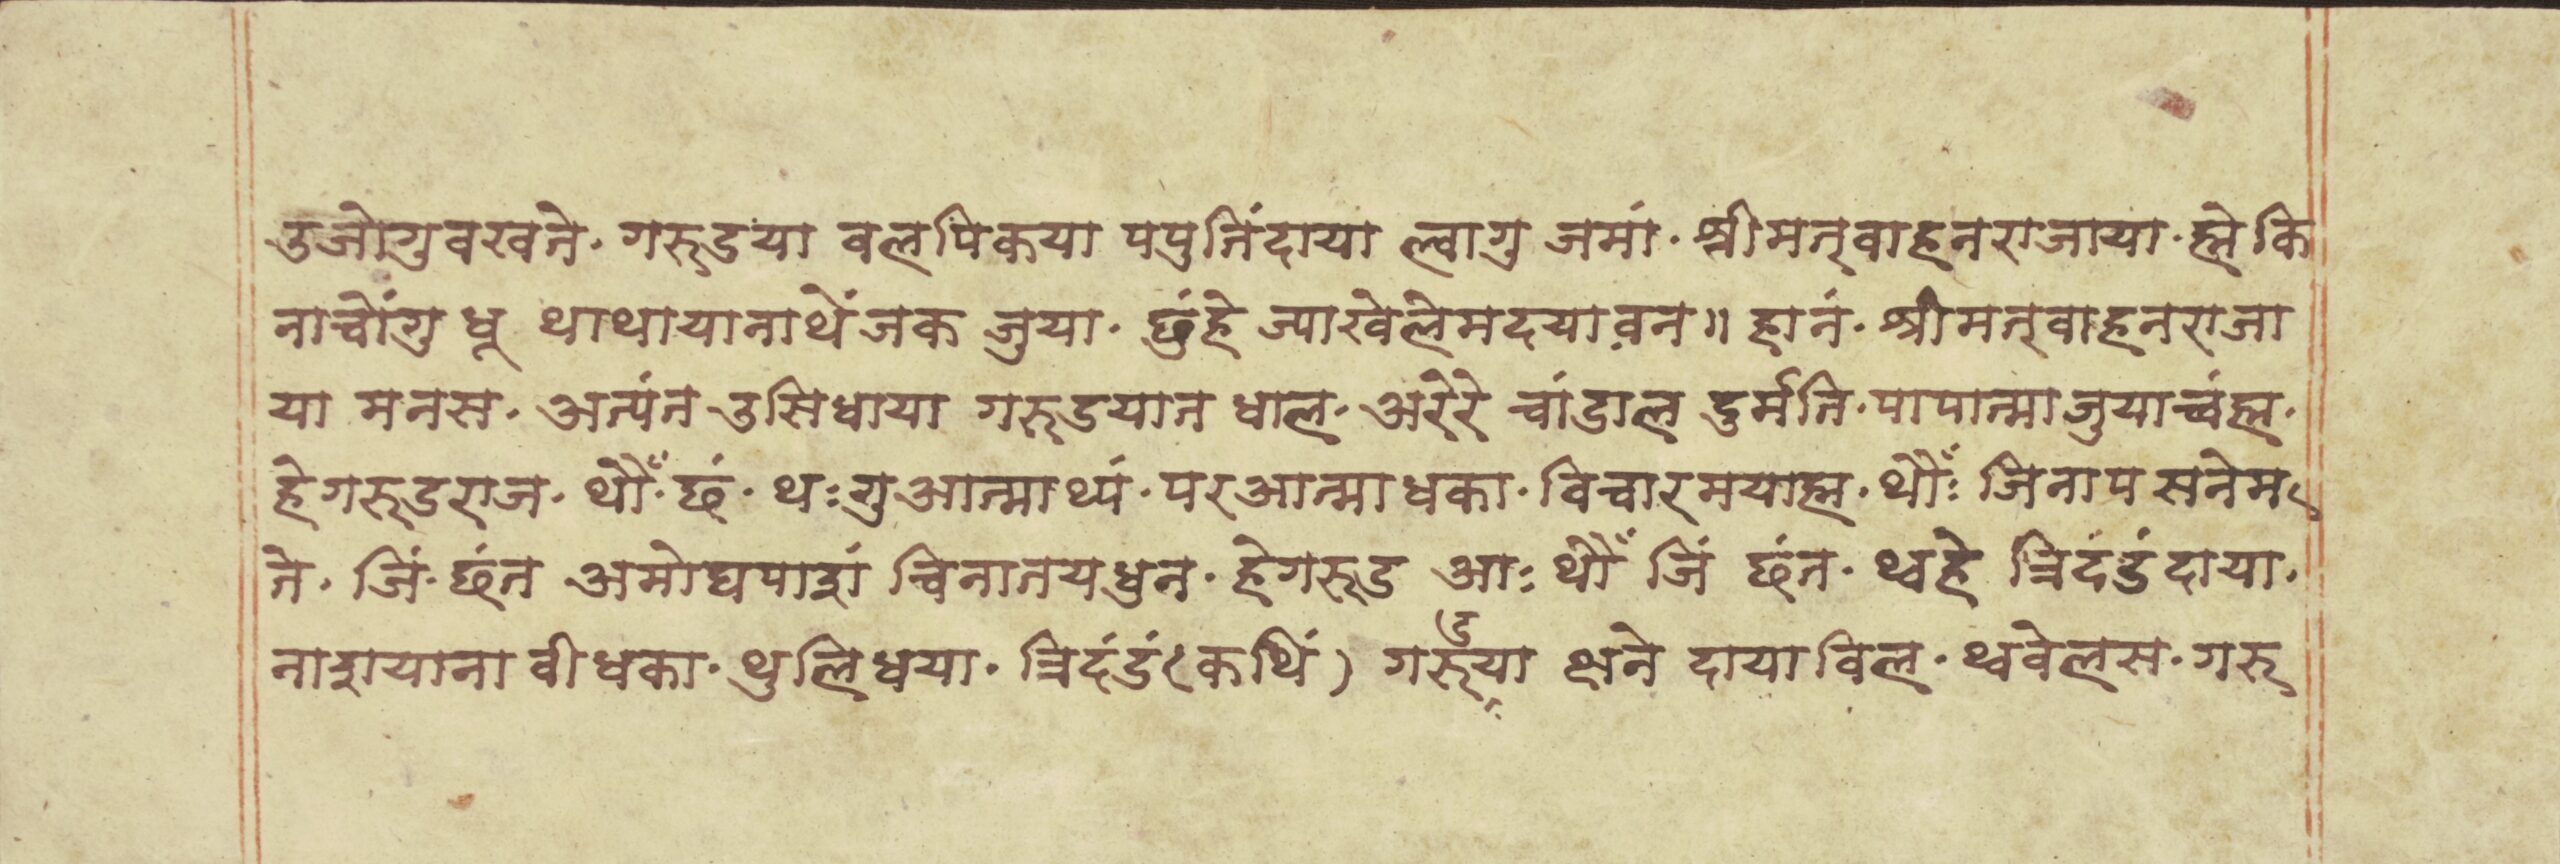 उजोगुवखने. गरूडया वलपिकया पपुतिंदाया ल्वागु जमां. श्रीमत्वाहनराजाया. ह्नेकि
नाचोंगु धू थाथायानाथेंजक जुया. छुंहे ज्याखेलेमदयावन॥ हानं. श्रीमत्वाहनराजा
या मनस. अत्यंत उसिधाया गरूडयात धाल. अरेरे चांडाल दुर्मति. पापात्मा जुयाच्वंह्म.
हेगरूडराज. थौँ. छं. थःगुआत्माथ्यं. परआत्माधका. विचारमयाह्म. थौँः जिनाप सनेम
ते. जिं. छंत अमोघपाशं चिनातयधुन. हेगरूड आः थौँ जिं छंत. थ्वहे त्रिदंडं दाया.
नाशयानावीधका. थुलिधया. त्रिदंडं(कथिं) गरूडया क्षने दायाविल. थ्ववेलस. गरू